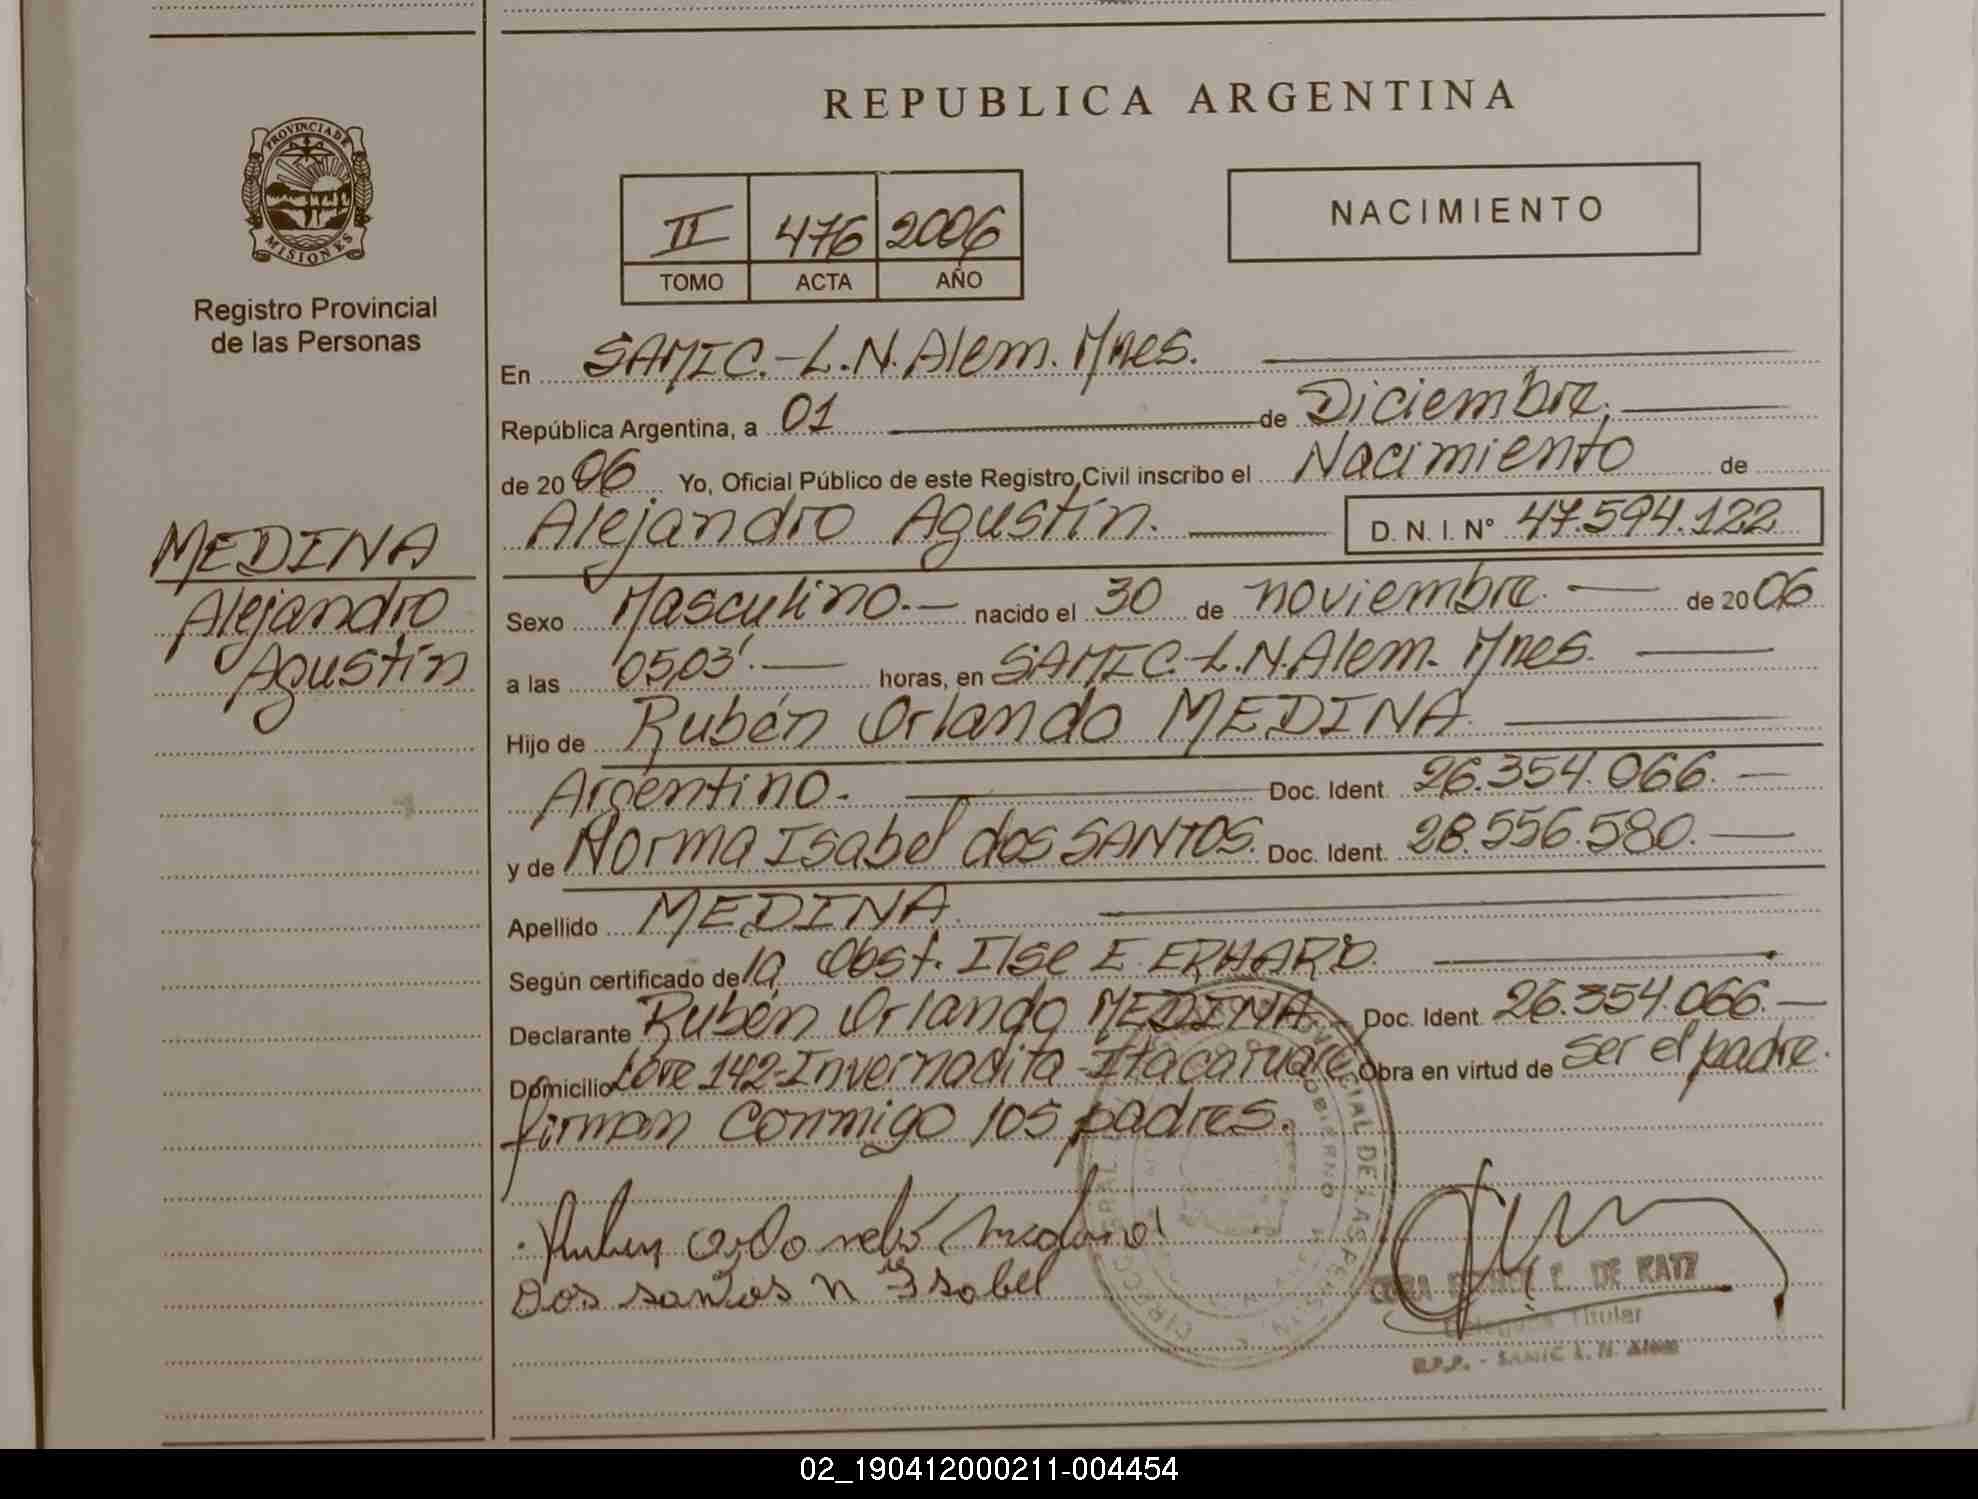 REPUBLICA ARGENTINA
PROVINCIA DE
MISIONES
Registro Provincial
de las Personas
II 476 2006
TOMO ACTA AÑO
NACIMIENTO
En SAMIC.-L.N.Alem. Mnes.
República Argentina, a 01 de Diciembre.
de 2006 Yo, Oficial Público de este Registro Civil inscribo el Nacimiento de
Alejandro Agustín. D. N. I. N° 47.594.122
MEDINA
Alejandro
Agustín
Sexo Masculino.- nacido el 30 de noviembre. de 2006
a las 05,03'. horas, en SAMIC-L.N.Alem. Mnes.
Hijo de Rubén Orlando MEDINA.
Argentino. Doc. Ident. 26.354.066.
y de Norma Isabel dos SANTOS. Doc. Ident. 28.556.580.
Apellido MEDINA.
Según certificado de la Obst. Ilse E. ERHARD.
Declarante Rubén Orlando MEDINA Doc. Ident. 26.354.066.
Domicilio Lote 142-Invernadita-Itacaruaré Obra en virtud de ser el padre.
firman conmigo los padres.
Dos santos n Isabel
DE KATZ
Titular
R.P.P. - SAMIC L. N. Alem
02_190412000211-004454